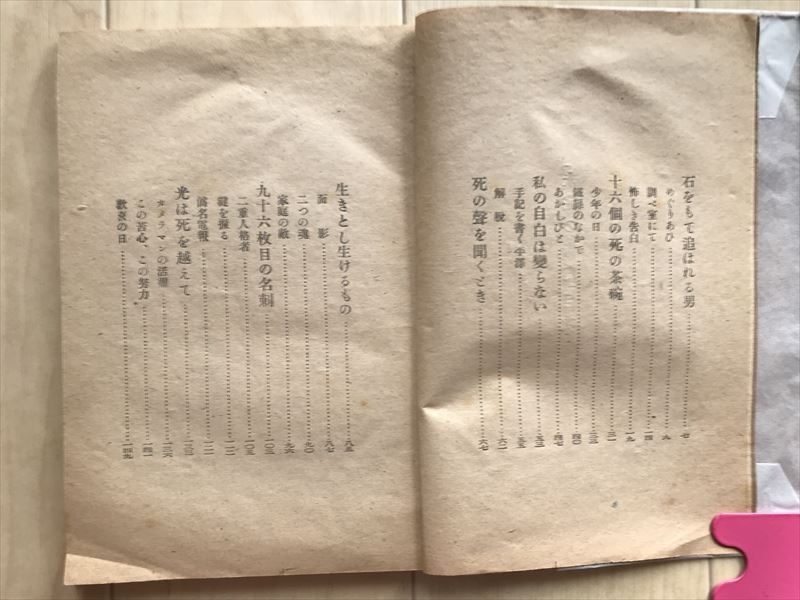 石をもて追はれる男……七
めぐりあひ……九
調べ室にて……一四
怖しき告白……一九
十六個の死の茶碗……三一
少年の日……三三
のなかで……四〇
あかしびと……四七
私の自白は變らない……五三
手記を書く平澤……五五
解脫……六二
死の聲を聞くとき……六七
生きとし生けるもの……八五
面影……八七
二つの魂……九〇
家庭の敵……九六
九十六枚目の名刺……一〇三
二重人格者……一〇五
謎を握る……一一二
僞名電報
光は死を越えて……一三三
カメラマンの活躍……一三六
この苦心、この努力……一四一
歡喜の日……一四九